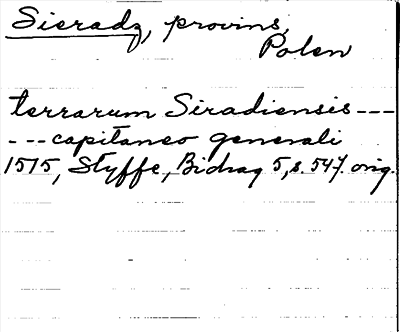 Sieradz, provins,
Polen
terrarum Siradiensis ---
--- capitaneo generali
1515, Styffe, Bidrag 5, s. 547. orig.